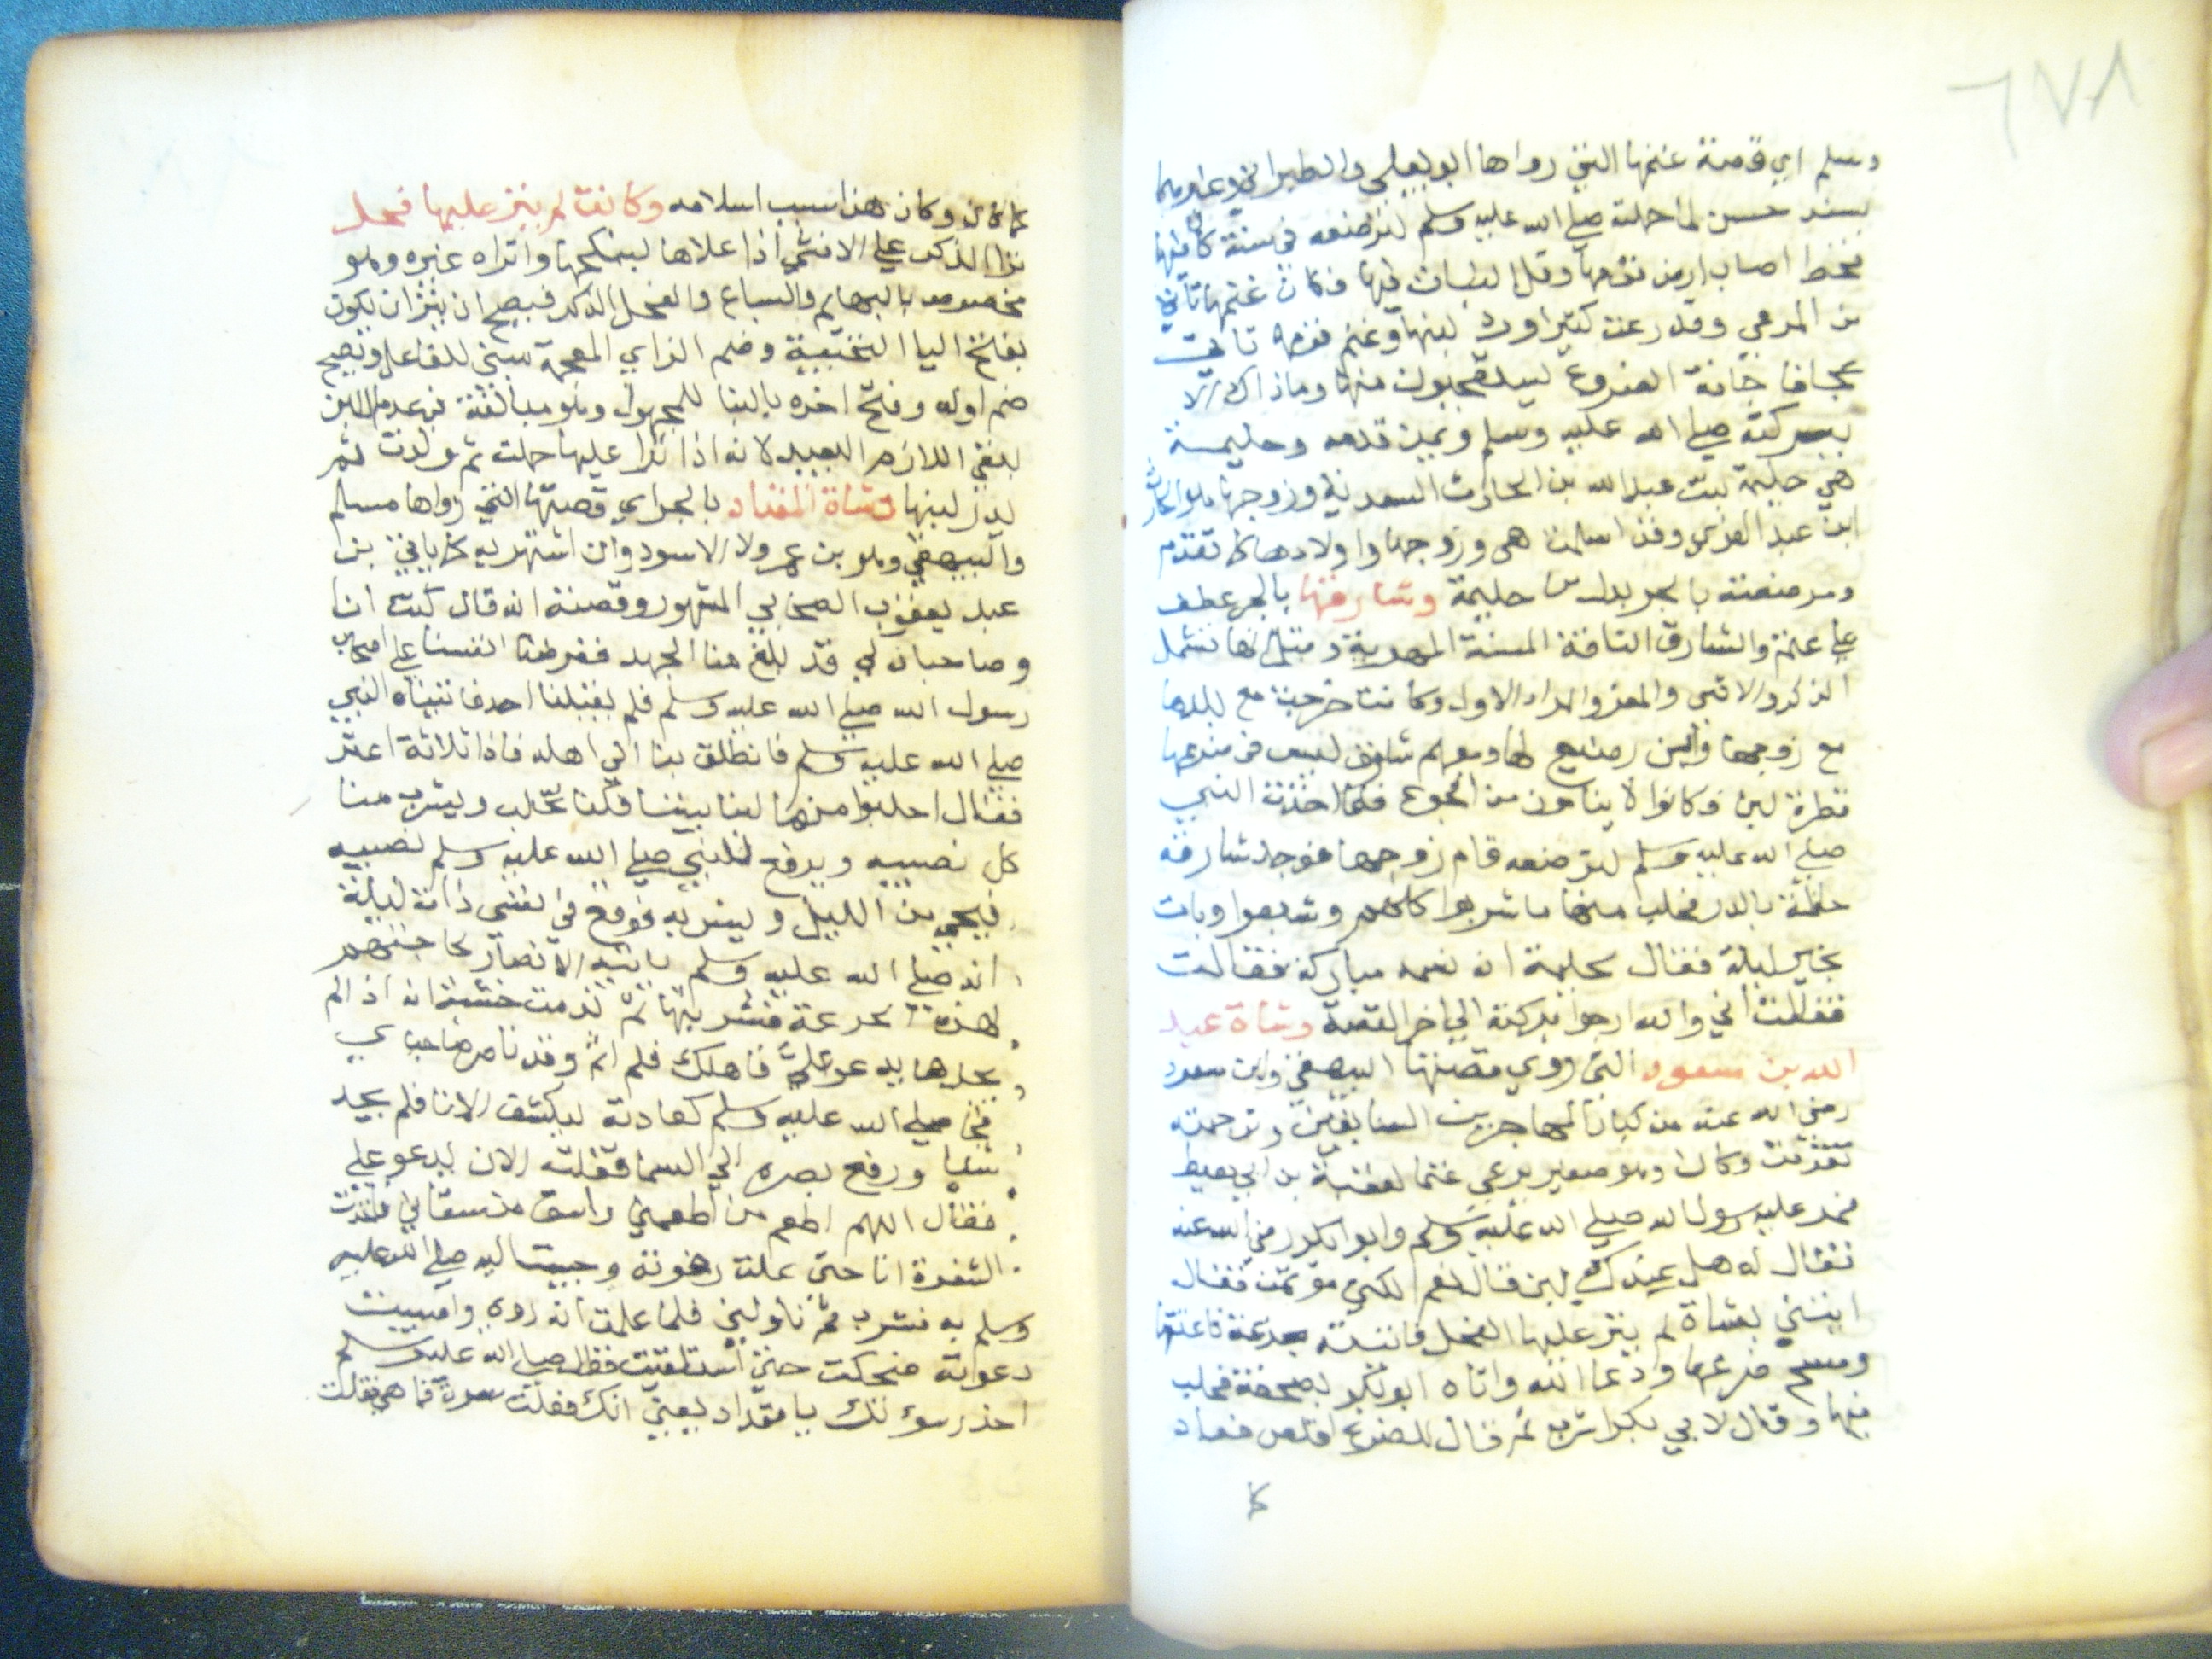 ٦٧٨
وسلم اي قصة غنمها التي رواها ابو يعلي والطبراني وغيرهما
بسند حسن لما حملته صلي الله عليه وسلم لترضعه في سنة كان فيها
قحط اصاب ارض قومها وقل النبات فيها فكان غنمها تاتي
من المرعي وقد رعت كثيرا ودر لبنها وغنم قومها تاتي
عجافا جافة الضروع ليس فيها وما ذاك الا
ببركته صلي الله عليه وسلم ويمن قدمه وحليمة
هي حليمة بنت عبد الله بن الحارث السعدية وزوجها هو الحارث
ابن عبد العزي وقد اسلمت هي وزوجها واولادها كما تقدم
ومرضعته بالجر بدل من حليمة وشارفها بالجر عطف
علي غنم والشارف الناقة المسنة وقيل انها تشمل
الذكر والانثي والمعز والمراد الاول وكانت خرجت مع
مع زوجها وابن رضيع لها ومعهم شارف ليس في ضرعها
قطرة لبن وكانوا لا ينامون من الجوع فلما اخذت النبي
صلي الله عليه وسلم لترضعه قام زوجها فوجد شارفه
حافلة بالدر فحلب منها ما شربوا كلهم وشبعوا وبات
بخير ليلة فقال لحليمة انه نسمة مباركة فقالت
فقالت اني والله ارجوا بركته الي اخر القصة وشاة عبد
الله بن مسعود التي روي قصتها البيهقي وابن مسعود
رضي الله عنه من كبار المهاجرين السابقين وترجمته
تقدمت وكان وهو صغير يرعي غنما لعقبة بن ابي معيط
فمر عليه رسول الله صلي الله عليه وسلم وابو بكر رضي الله عنه
فقال له هل عندك لبن قال نعم لكني موتمن فقال
ايتني بشاة لم ينز عليها الفحل فاتيته بجدعة فاعتقلها
ومسح ضرعها ودعا الله واتاه ابو بكر بصحفة فحلب
فيها وقال لابي بكر اشرب ثم قال للضرع اقلص فعاد
كما
كما كان وكان هذا سبب اسلامه وكانت لم ينز عليها فحل
نزا الذكر علي الانثي اذا علاها لينكحها وانزاه غيره وهو
مخصوص بالبهائم والسباع والفحل الذكر فيصح ان ينز ان يكون
بفتح اليا التحتية وضم الزاي المعجمة مبني للفاعل ويصح
ضم اوله وفتح اخره بالبنا للمجهول وهو مبالغة في عدم اللبن
بنفي اللازم البعيد لانه اذا نزا عليها حملت ثم ولدت ثم
يدر لبنها وشاة المقداد بالجر اي قصتها التي رواها مسلم
والبيهقي وهو بن عمرو لا الاسود وان اشتهر به كما ياتي بن
عبد يغوث الصحابي المشهور وقصته انه قال كنت انا
وصاحبان لي قد بلغ منا الجهد فعرضنا انفسنا علي اصحاب
رسول الله صلي الله عليه وسلم فلم يقبلنا احد فاتيناه النبي
صلي الله عليه وسلم فانطلق بنا الي اهله فاذا ثلاثة اعنز
فقال احلبوا منها لبنا بيننا فكنا نحلب ويشرب منا
كل نصيبه ويرفع للنبي صلي الله عليه وسلم نصيبه
فيجي من الليل ويشربه فوقع في نفسي ذات ليلة
انه صلي الله عليه وسلم ياتيه الانصار لحاجتهم
لهذه الجرعة فشربتها ثم ندمت خشية انه اذا لم
يجدها يدعو علي فاهلك فلم انم وقد نام صاحباي
فجا صلي الله عليه وسلم كعادته ليكشف الانا فلم يجد
شيا ورفع بصره الي السما فقلت الان يدعو علي
فقال اللهم اطعم من اطعمني واسق من سقاني فاخذت
الشفرة انا حتي علت رغوته وجيت اليه صلي الله عليه
وسلم به فشرب ثم ناولني فلما علمت انه روي واصبت
دعوته ضحكت حتي استلقيت فقال صلي الله عليه وسلم
احد سوءتك يا مقداد يعني انك فعلت سوءة فما هي فقلت